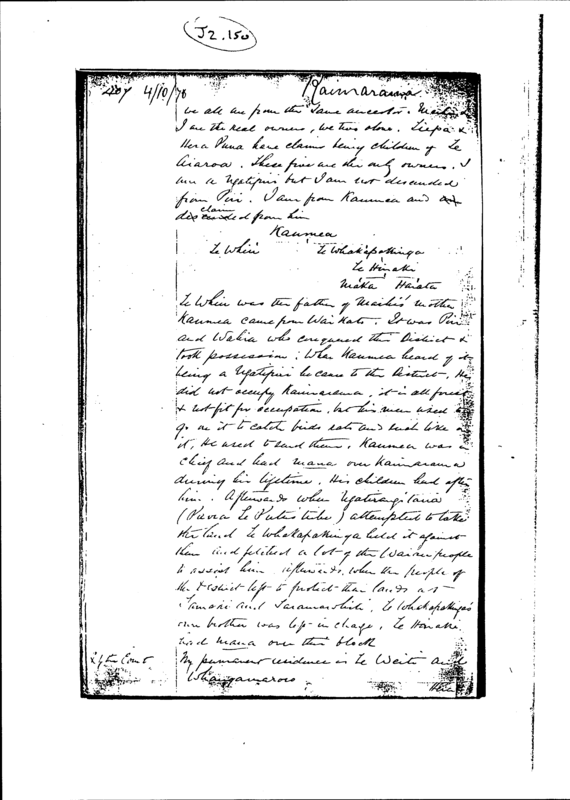 J2.150
407 4/10/78 Kaimarama
we all are from the same ancestor.
I are the real owners, we two alone. &
Hera Puna have claims being children of Te
Aiaroa. These five are the only owners. I
am a Ngatipiri but I am not descended
from Piri. I am from Kaumea and
claim
descended from him
Kaumea
Te Whiu Te Whakapakinga
Te Hinaki
Maka Harata
Te Whiu was the father of mother
Kaumea came from Waikato. It was Piri
and Wahia who conquered this District &
took possession. When Kaumea heard of it
being a Ngatipiri he came to the District. He
did not occupy Kaimarama, it is all forest
& not fit for occupation, but his men used to
go on it to catch birds rats and such like on
it, He used to send them. Kaumea was a
chief and had mana over Kaimarama
during his lifetime. His children had after
him. Afterwards when
( tribe) attempted to take
the land Te Whakapakinga held it against
them and fetched a lot of the people
to assist him afterwards, when the people of
the District left to protect their lands at
Tamaki and Te Whakapakinga's
own brother was left in charge, Te Hinaki
had mana over this block
By the Court My permanent residence is Te Weiti and
Whangamaroro